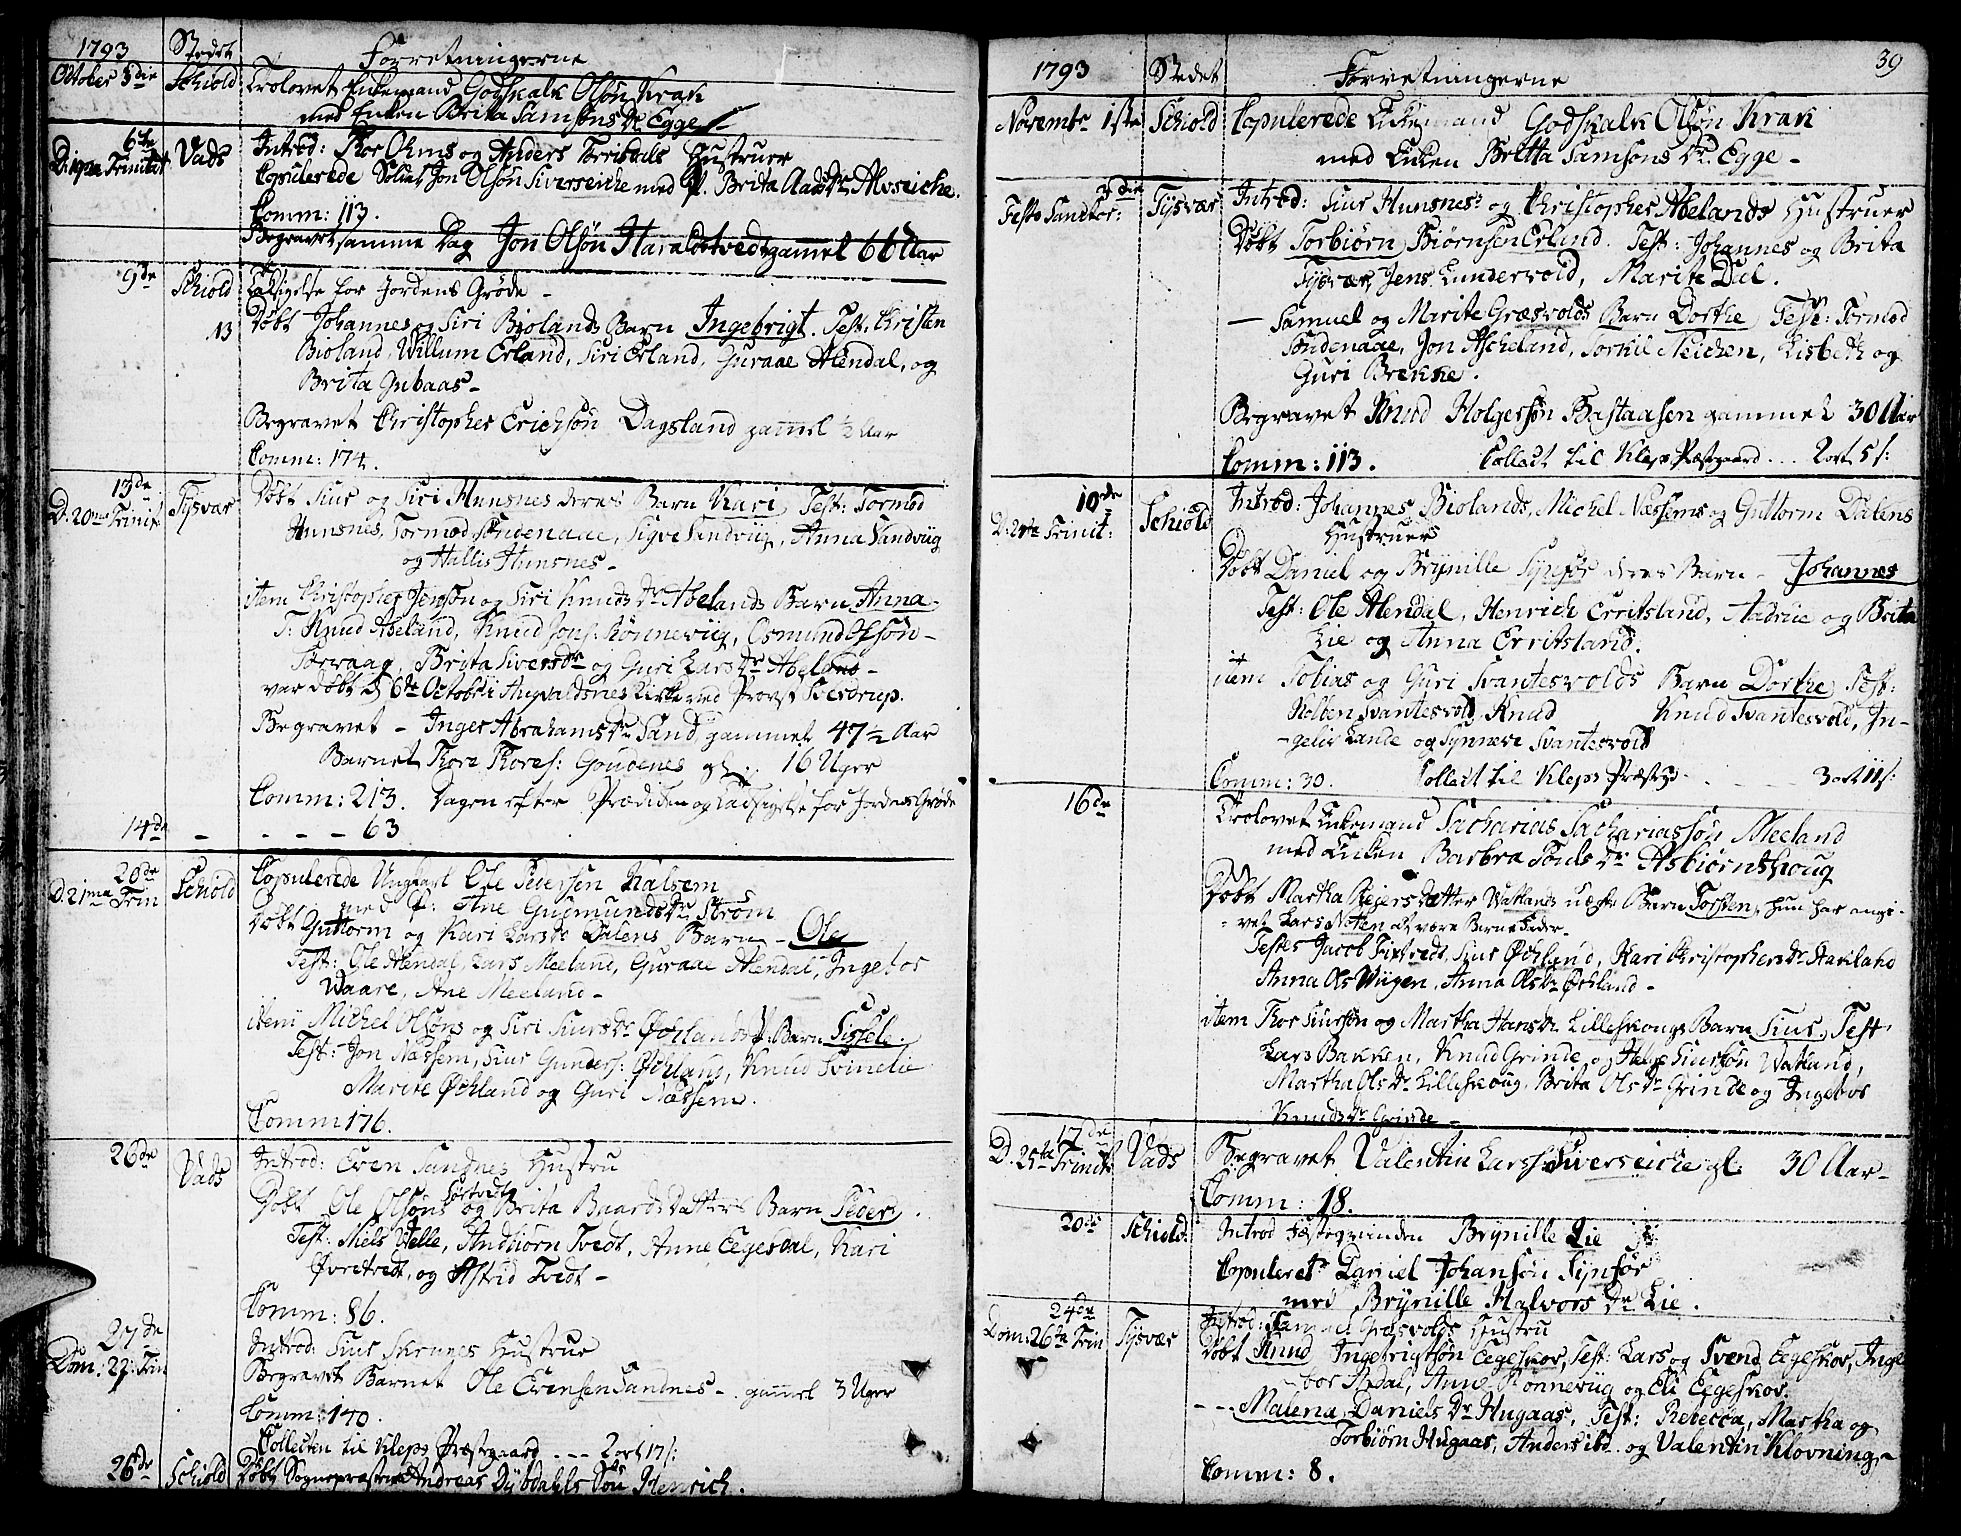 1793 Stedet Forretningerne
October 3die Schiold Trolovet Enkemand Godskalk Olsøn Krak
med Enken Brita Samsons Dr Egge
6te
D: 19na Trinitat Vads Introd: Thor Ohms og Anders Torrisdals Hustruer
Copulerede Soldat Jon Olsøn Siverseiche med P. Brita Aads Dr Alvseiche.
Comm: 113.
Begravet samme Dag Jon Olsøn Haraldstvedt gamel 66 Aar
9de Schiold Taksigelse for Jordens Grøde
13 Døbt Johannes og Siri Biolands Barn Ingebrigt. Test: Christen
Bioland, Willum Erland, Siri Erland, Guraae Alendal, og
Brita Gubaas
Begravet Christopher Erichsøn Dagsland gamel ½ Aar
Comm: 174.
13de
D: 20me Trinit Tysvær Døbt Siur og Siri Hunsnes deres Barn Kari Test: Tormod
Hunsnes, Tormod Søndenaae, Sigve Sandviig, Anna Sandviig
og Hallis Hunsnes
item Christopher Jensøn og Siri Knuds Dr Abelands Barn Anna
T: Knud Abeland, Knud Jons: Rønneviig, Osmund Olsøn
Førraag, Brita Sivers Dr og Guri Lars Dr Abeland
var døbt d 6te Octobr i Augvaldsnes Kirke ved Provst
Begravet Inger Abrahams Dr Sand gammel 47½ Aar
Barnet Thore Thores: Goudenes gl: 16 Uger
Comm: 213. Dagen efter Prædiken og Taksigelse for Jordens Grøde
14de - - - 63
20de
D. 21ma Trin Schiold Copulerede Ungkarl Ole Pedersen Kalsem
med P: Ane Gugmunds Dr Strøm
Døbt Guttorm og Kari Lars Dr Dalens Barn Ole
Test: Ole Alendal, Lars Meeland, Guraae Alendal, Ingebor
Waare, Ane Meeland
item Michel Olsøns og Siri Siurs Dr Øchlands P. Barn Sissele.
Test: Jon Nassem, Siur Gunders: Øchland, Knud Svinelie
Marite Øchland og Guri Næssem.
Comm 176.
26de Vads Introd: Even Sandnes Hustru
Døbt Ole Olsøns Sørtvedt og Brita Baards Datters Barn Peder
Test: Niels Velle, Andbiørn Tvedt, Anne Eegesdal, Kari
Øvretvedt, og Astrid Tvedt
Comm: 86.
27de
Dom. 22. Trin Introd: Siur Skrunes Hustrue
Begravet Barnet Ole Evensen Sandnes gamel 3 Uger
Comm: 140.
Collecten til Kleps Præstgaard - - - 2 ort 17 s:
26de Schiold Døbt Sognepræsten Andreas Dybdahls Søn Henrich.
39
1793 Stedet Forretningerne
Novembr 1ste Schiold Copulerede Enkemand Godskalk Olsøn Krak
med Enken Britta Samsons Dr Egge
3die
Festo Sanctor: Tysvær Introd: Siur Hunsnes og Christopher Abelands Hustruer
Døbt Torbiørn Biørnsen Erland. Test: Johannes og Brita
Tysvær, Jens Lundervold, Marite Dul.
Samuel og Marite Græsvolds Barn Dorthe Test: Tormod
Søndenaae, Jon Ascheland, Torkil Neichen, Lisbeth og
Guri Brekke.
Begravet Knud Holgersøn Bastaasen gammel 30 Aar
Comm: 113. Collect til Kleps Præstgaard ... 2 ort 5 s:
10de
D: 24de Trinit: Schiold Introd: Johannes Biolands, Michel Næssems og Guttorm Dalens
Hustruer
Døbt Daniel og Brynille Synfør deres Barn Johannes
Test: Ole Alendal, Henrich Erritsland, Aadrue og Brita
Lie og Anna Erritsland.
item Tobias og Guri Svantesvolds Barn Dorthe Test:
Holben Svantesvold, Knud Knud Svantesvold, In-
gelir Lande og Synneve Svantesvold
Comm: 30. Collect til Kleps Præstgd - - - 3 ort 11 s:
16de Trolovet Enkemand Sacharias Sachariassøn Meeland
med Enken Barbra Pouls Dr Asbiørnshoug
Døbt Martha Reiers Datter Watlands uægte Barn Torsten, hun har angi-
vet Lars Noten at være Barnefader.
Testes Jacob Tistvedt, Siur Øchland, Kari Christophers Dr Haviland
Anna Ols Wiigen, Anna Ols Dr Øchland
item Thor Siursøn og Martha Hans Dr Lilleskougs Barn Siur, Test
Lars Bakken, Knud Grinde, og Helge Siursøn Watland,
Martha Ols Dr Lilleskoug, Brita Ols Dr Grinde og Ingebor
Knuds Dr Grinde
17de
D. 25ta Trinit Vads Begravet Valentin Larss: Siverseiche gl: 30 Aar
Comm: 18.
20de Schiold Introd Fæsteqvinden Brynille Lie
Copuleret Daniel Johansøn Synfør
med Brynille Halvors Dr Lie.
24de
Dom: 26te Trin Tysvær Introd: Samuel Græsvolds Hustru
Døbt Knud Ingebrigtsøn Eegeskov, Test: Lars og Svend Eegeskov, Inge
bor Ardal, Anne Rønneviig og Eli Eegeskov.
- - Malena Daniels Dr Hugaas, Test: Rebecca, Martha og
Torbiørn Hugaas, Anders ibd. og Valentin Klovning
Comm: 8.